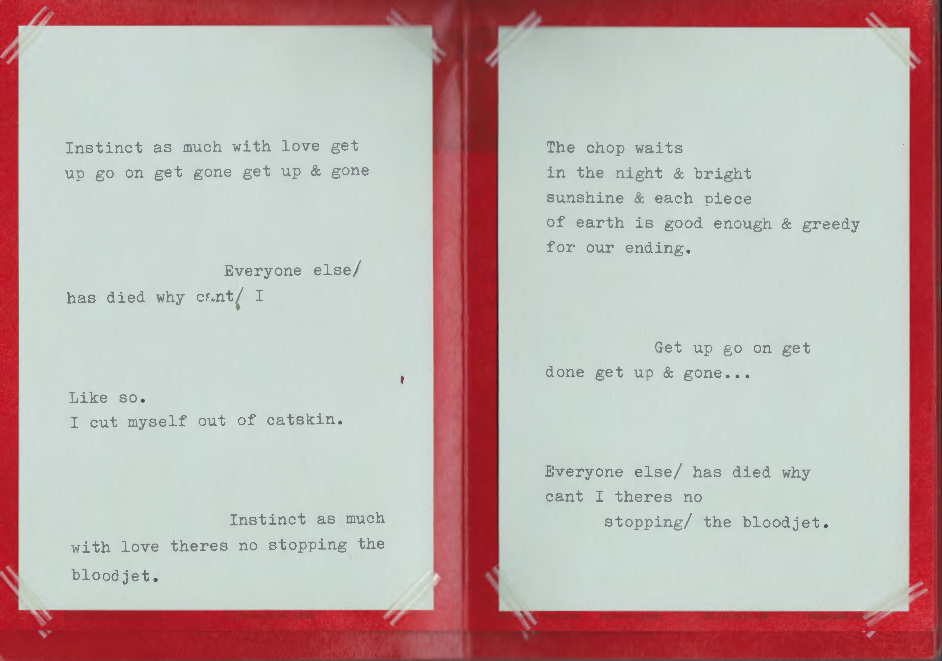 Instinct as much with love get
up go on get gone get up & gone
Everyone else/
has died why cant/ I
Like so.
I cut myself out of catskin.
Instinct as much
with love theres no stopping the
bloodjet.
The chop waits
in the night & bright
sunshine & each piece
of earth is good enough & greedy
for our ending.
Get up go on get
done get up & gone...
Everyone else/ has died why
cant I theres no
stopping/ the bloodjet.